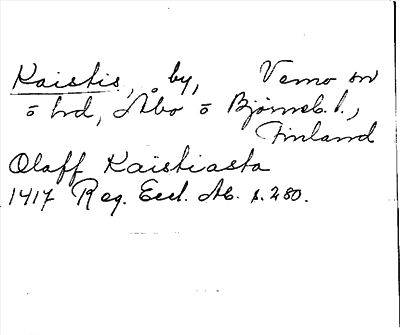 Kaistis, by, Vemo sn
o hd, Åbo o Bjørneb. l.,
Finland
Olaff Kaistiasta
1417 Reg. Eccl. Ab. s. 280.